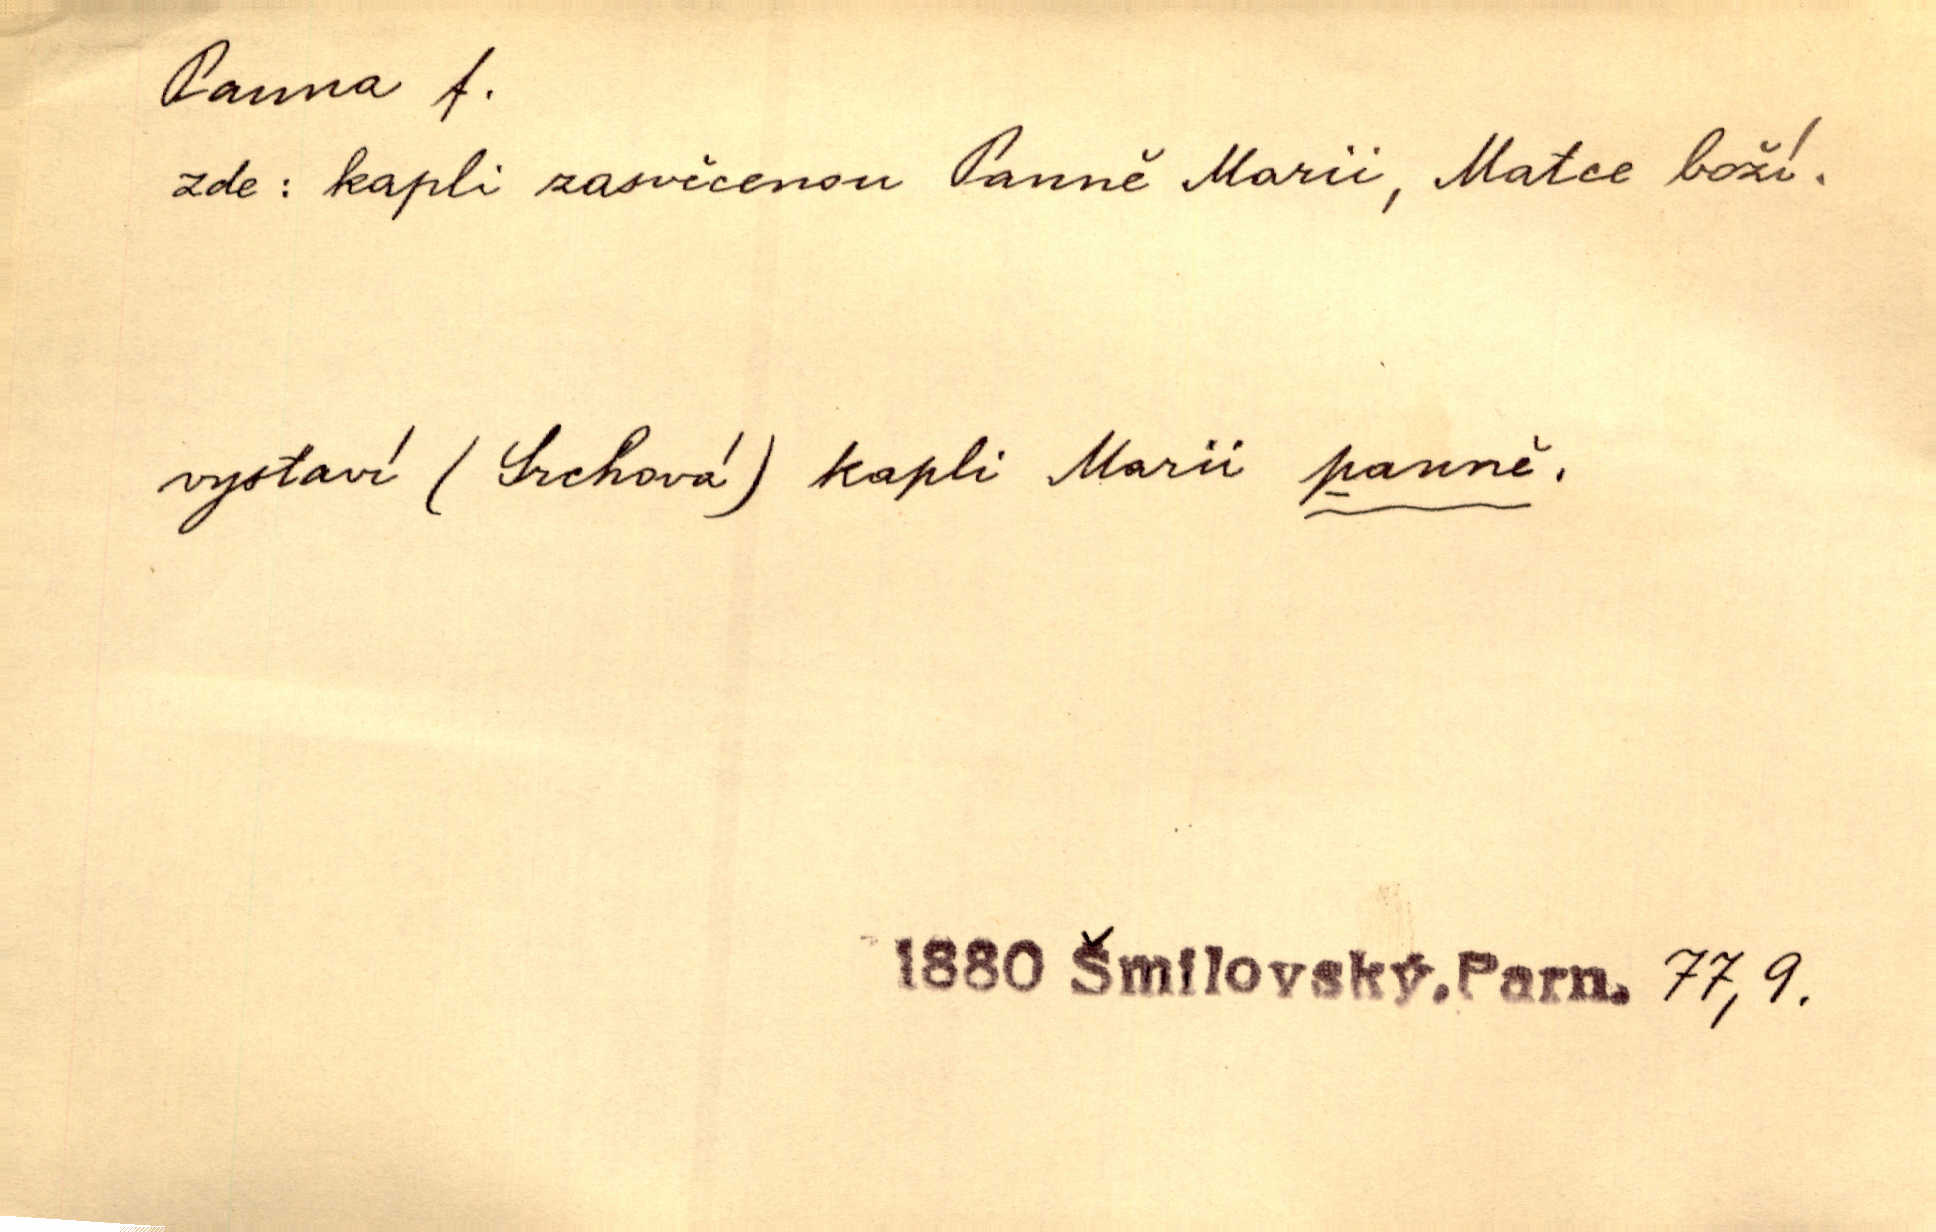 Panna f.
zde: kapli zasvěcenou Panně Marii, Matce boží.
vystaví (Srchová) kapli Marii panně.
1880 Šmilovský.Parn. 77,9.